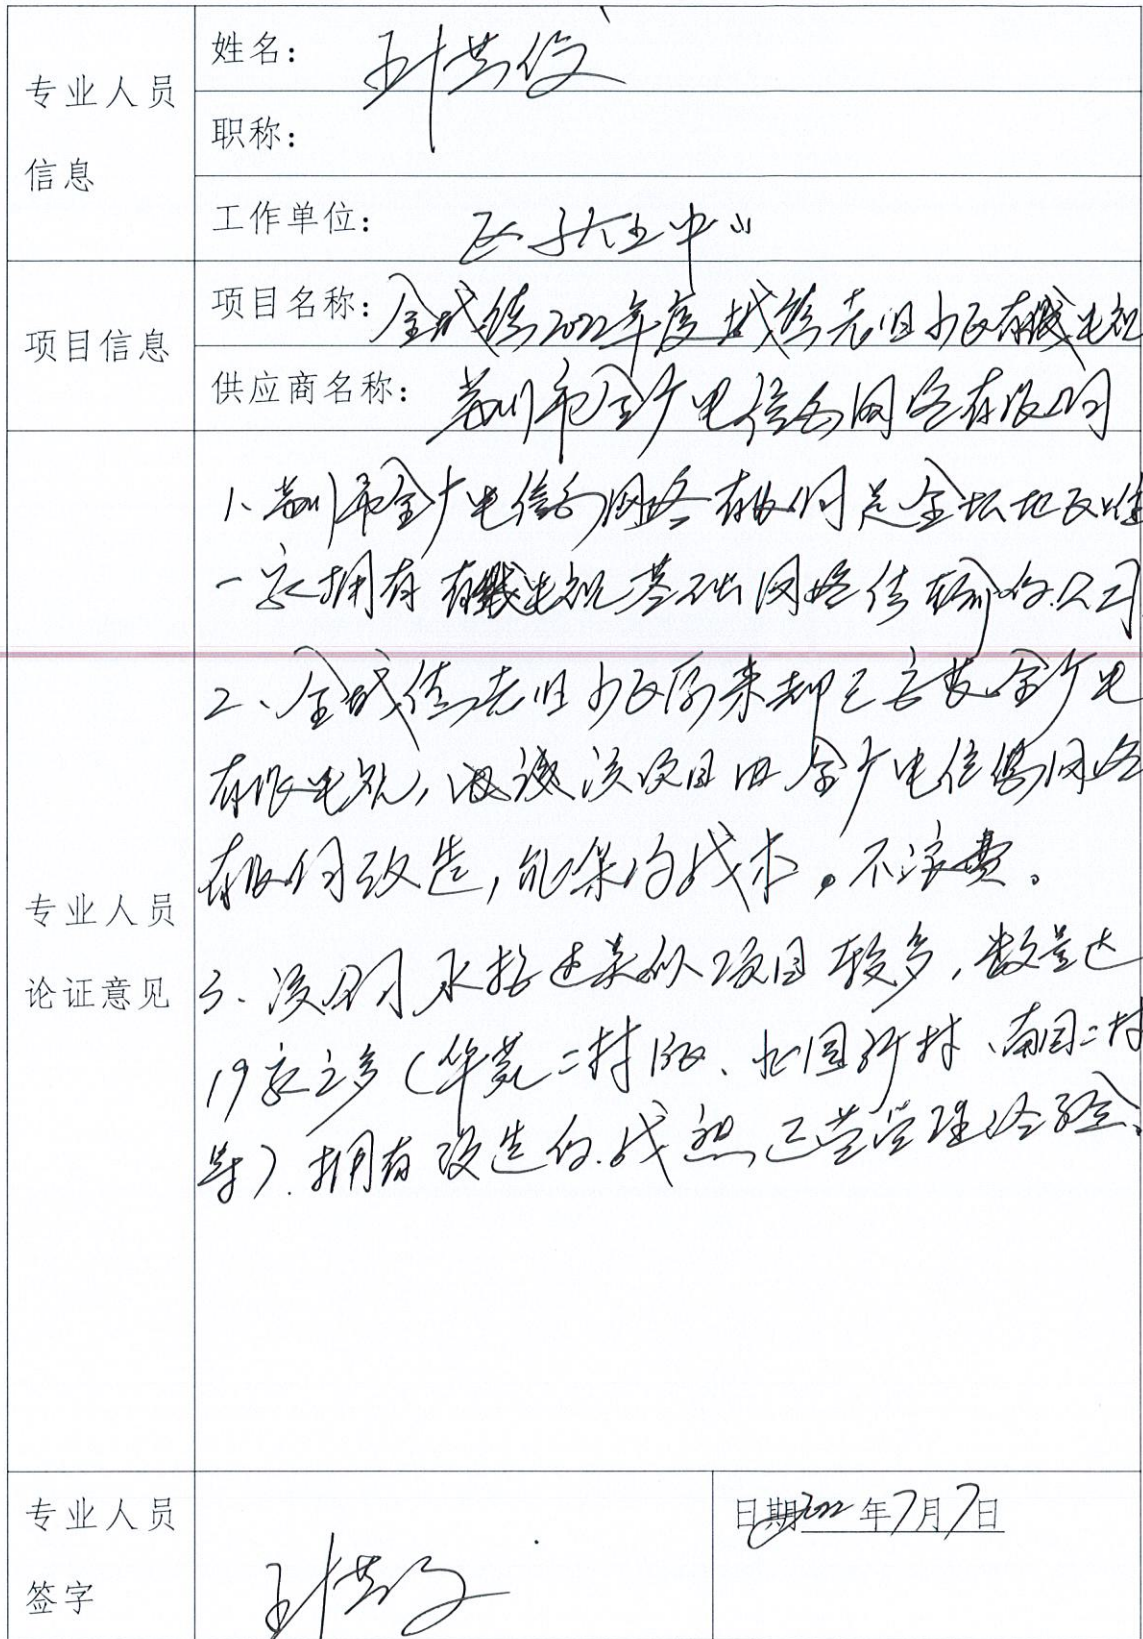 专业人员
信息
姓名：
职称：
工作单位：
项目信息
项目名称：金城镇2022年度城镇老旧小区有线电视
供应商名称：常州市金广电信息网络有限公司
专业人员
论证意见
1、常州市金广电信息网络有限公司是金坛地区唯
一家拥有有线电视基础网络传输的公司
2、金城镇老旧小区原来都已安装金广电
有限电视，该项目由金广电信息网络
有限公司改造，能节约成本。不浪费。
3、该公司承接过类似项目较多，数量达
19家之多（华苑二村、北园新村、南园二村
等）.拥有改造的成熟运营管理经验。
专业人员
签字
日期2022年7月7日